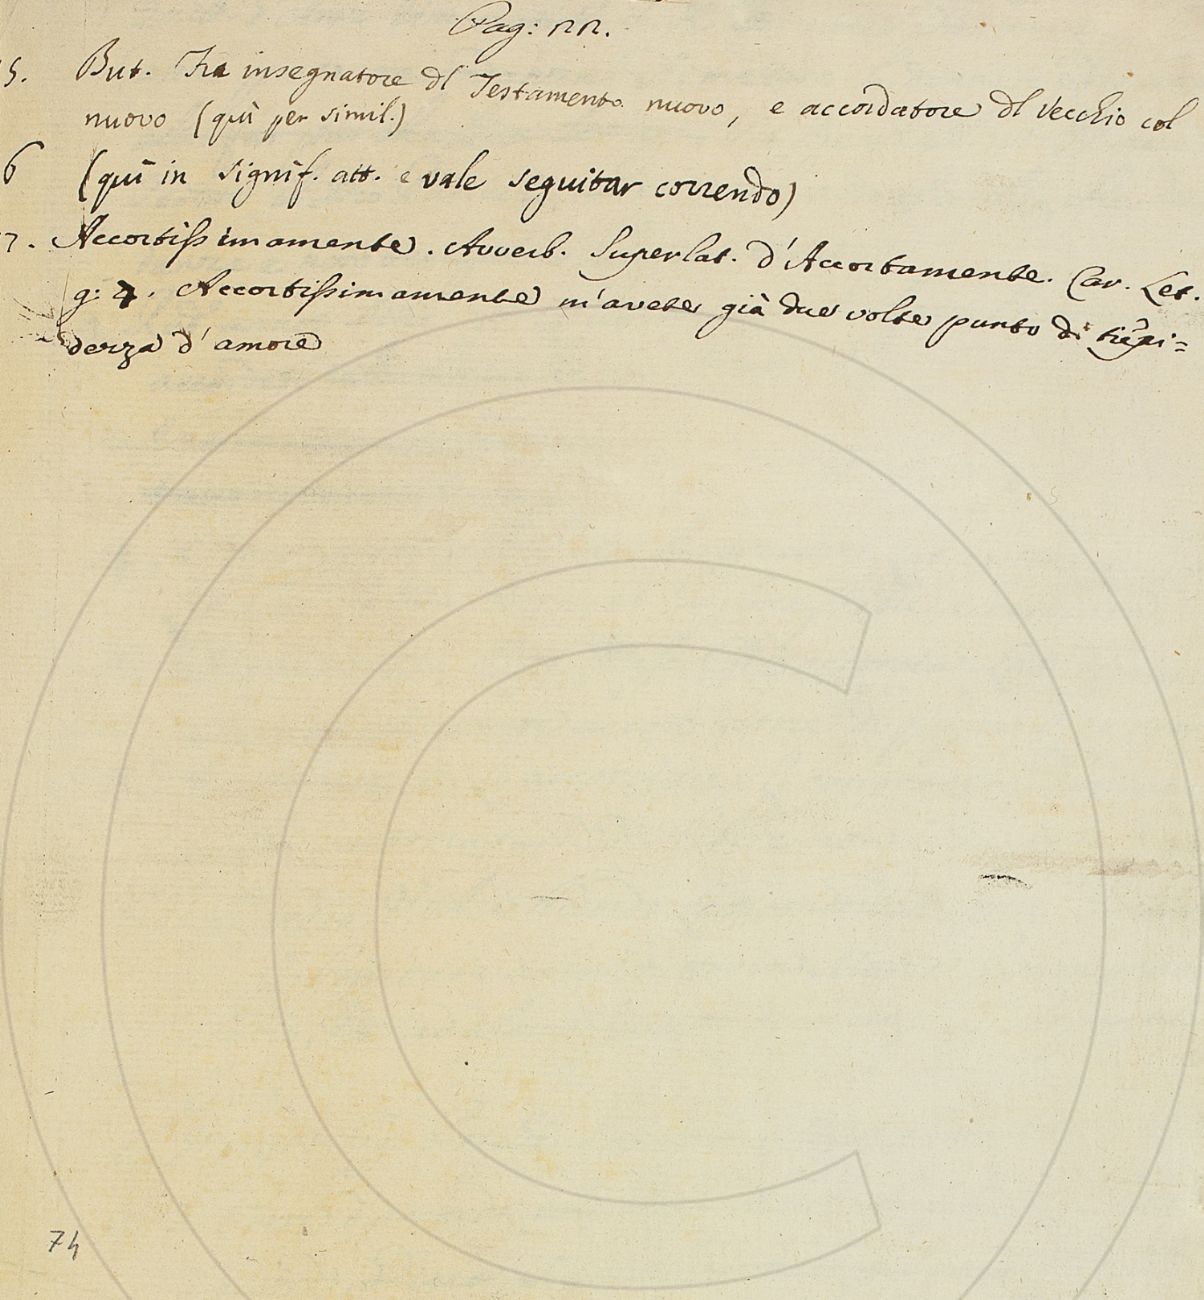 Pag: 22.
5. But. Fra insegnatore dl Testamento nuovo, e accordatore dl Vecchio col
nuovo (quì per simil.)
6 (quì in signif. att. e vale seguitar correndo)
7. Accortissimamente. Avverb. Superlat. d'Accortamente. Car. Let.
g: 7. Accortissimamente m'avete già due volte punto di tiepi=
dezza d'amore
74